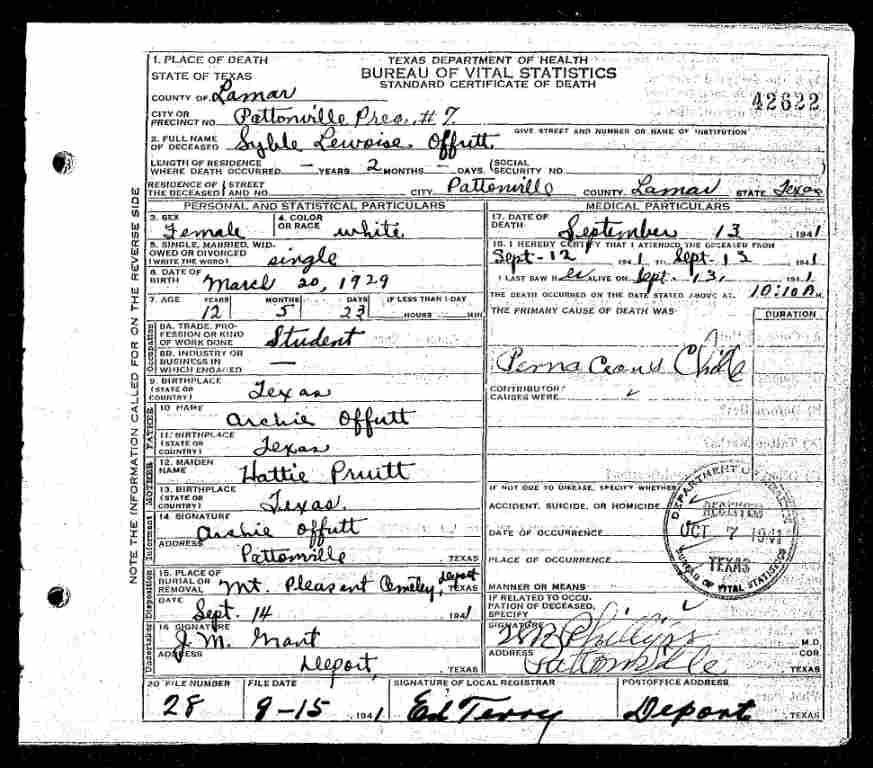 1. PLACE OF DEATH
STATE OF TEXAS
TEXAS DEPARTMENT OF HEALTH
BUREAU OF VITAL STATISTICS
STANDARD CERTIFICATE OF DEATH
42622
COUNTY OF Lamar
CITY OR PRECINCT NO. Pattonville Prec. #7
GIVE STREET AND NUMBER OR NAME OF INSTITUTION
2. FULL NAME OF DECEASED Syble Lewoise Offutt
LENGTH OF RESIDENCE WHERE DEATH OCCURRED — YEARS 2 MONTHS — DAYS. (SOCIAL SECURITY NO. )
RESIDENCE OF THE DECEASED (STREET AND NO. CITY Pattonville COUNTY Lamar STATE Texas
NOTE THE INFORMATION CALLED FOR ON THE REVERSE SIDE
PERSONAL AND STATISTICAL PARTICULARS
3. SEX Female
4. COLOR OR RACE white
5. SINGLE, MARRIED, WIDOWED OR DIVORCED (WRITE THE WORD) single
6. DATE OF BIRTH March 20, 1929
7. AGE YEARS 12 MONTHS 5 DAYS 23 IF LESS THAN 1 DAY HOURS MIN
Occupation
8A. TRADE, PROFESSION OR KIND OF WORK DONE Student
8B. INDUSTRY OR BUSINESS IN WHICH ENGAGED —
9. BIRTHPLACE (STATE OR COUNTRY) Texas
FATHER
10 NAME Archie Offutt
11. BIRTHPLACE (STATE OR COUNTRY) Texas
MOTHER
12. MAIDEN NAME Hattie Pruitt
13. BIRTHPLACE (STATE OR COUNTRY) Texas.
Informant
14 SIGNATURE Archie Offutt
ADDRESS Pattonville TEXAS
Disposition
15. PLACE OF BURIAL OR REMOVAL Mt. Pleasant Cemetey, Deport TEXAS
DATE Sept. 14 1941
Undertaker
16 SIGNATURE J. M. Grant
ADDRESS Deport, TEXAS
MEDICAL PARTICULARS
17. DATE OF DEATH September 13 1941
18. I HEREBY CERTIFY THAT I ATTENDED THE DECEASED FROM
Sept-12 1941 TO Sept-13 1941
I LAST SAW H er ALIVE ON Sept. 13, 1941
THE DEATH OCCURRED ON THE DATE STATED ABOVE AT 10:10 A M.
THE PRIMARY CAUSE OF DEATH WAS: DURATION
CONTRIBUTORY CAUSES WERE
IF NOT DUE TO DISEASE, SPECIFY WHETHER
ACCIDENT, SUICIDE, OR HOMICIDE
DATE OF OCCURRENCE
PLACE OF OCCURRENCE
MANNER OR MEANS
IF RELATED TO OCCUPATION OF DECEASED, SPECIFY
SIGNATURE Phillips M.D.
ADDRESS Pattonville COR TEXAS
OCT 7 1941
TEXAS
BUREAU OF VITAL STATISTICS
20 FILE NUMBER FILE DATE SIGNATURE OF LOCAL REGISTRAR POSTOFFICE ADDRESS
28 9-15 1941 Ed Terry Deport TEXAS